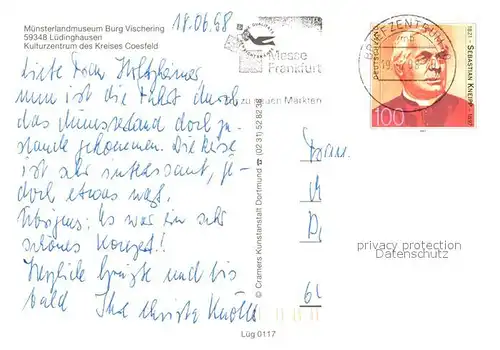 Münsterlandmuseum Burg Vischering
59348 Lüdinghausen
Kulturzentrum des Kreises Coesfeld
18.06.98
Liebe Frau
nun ist die Fahrt durch
das Münsterland doch zu-
stande gekommen. Die Reise
ist sehr interessant, je-
doch etwas
Übrigens: Es war ein sehr
schönes Konzert!
Herzliche Grüße und bis
bald Ihre Christa
Messe
Frankfurt
zu neuen Märkten
BRIEFZENTRUM
DEUTSCHLAND
100
1821 - SEBASTIAN KNEIPP - 1897
© Cramers Kunstanstalt Dortmund ☎ (0231) 52 82 38
Frau
privacy protection
Datenschutz
Lüg 0117